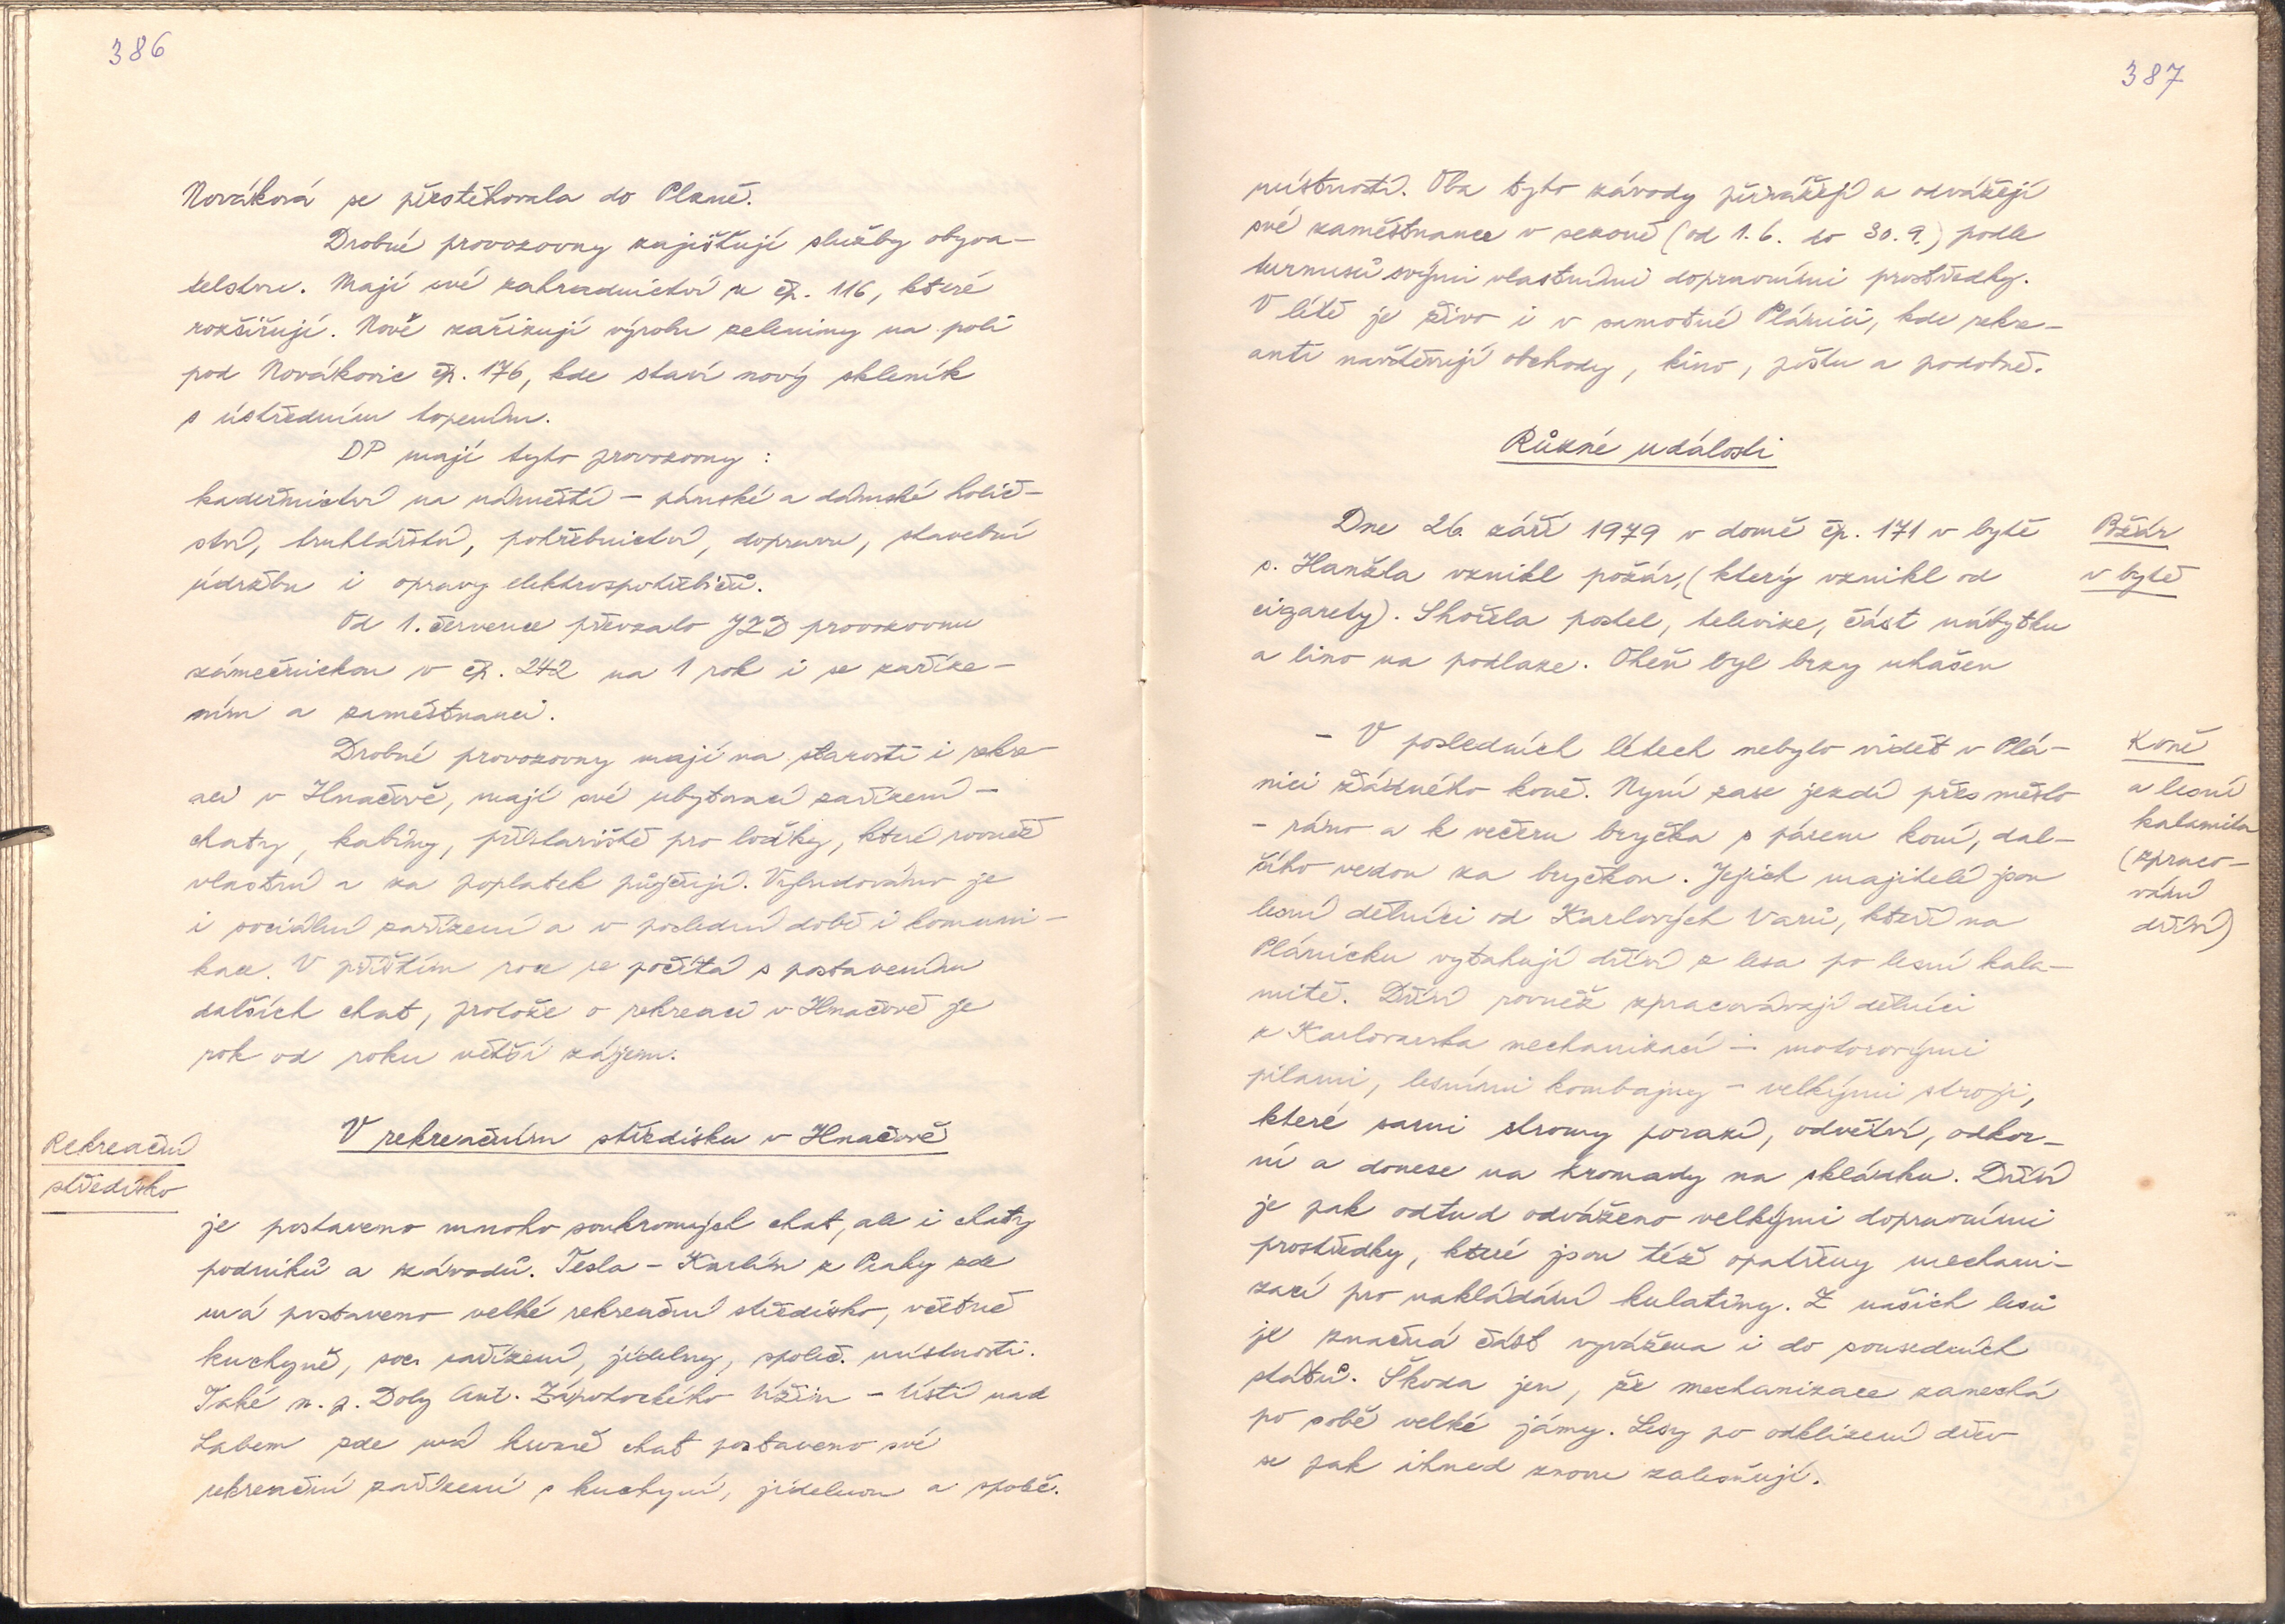 386
Nováková se přestěhovala do Plzně.
Drobné provozovny zajišťují služby obyva-
telstvu. Mají své zahradnictví u čp. 116, které
rozšiřují. Nově zařizují výrobu zeleniny na poli
pod Novákovic čp. 176, kde staví nový skleník
s ústředním topením.
DP mají tyto provozovny :
kadeřnictví na náměstí – pánské a dámské holič-
ství, truhlářství, pohřebnictví, dopravu, stavební
údržbu i opravy elektrospotřebičů.
Od 1. července převzalo JZD provozovnu
zámečnickou v čp. 242 na 1 rok i se zaříze-
ním a zaměstnanci.
Drobné provozovny mají na starosti i rekre-
aci v Hnačově, mají své ubytovací zařízení –
chaty, kabiny, přístaviště pro loďky, které rovněž
vlastní a za poplatek půjčují. Vybudováno je
i sociální zařízení a v poslední době i komuni-
kace. V příštím roce se počítá s postavením
dalších chat, protože o rekreaci v Hnačově je
rok od roku větší zájem.
V rekreačním středisku v Hnačově
Rekreační
středisko
je postaveno mnoho soukromých chat, ale i chaty
podniků a závodů. Tesla – Karlín z Prahy zde
má postaveno velké rekreační středisko, včetně
kuchyně, soc. zařízení, jídelny, společ. místnosti.
Také n. p. Doly Ant. Zápotockého Úžín – Ústí nad
Labem zde má kromě chat postaveno své
rekreační zařízení s kuchyní, jídelnou a společ.
387
místností. Oba tyto závody přivážejí a odvážejí
své zaměstnance v sezoně (od 1. 6. do 30. 9.) podle
turnusů svými vlastními dopravními prostředky.
V létě je živo i v samotné Plánici, kde rekre-
anti navštěvují obchody, kino, poštu a podobně.
Různé události
Dne 26. září 1979 v domě čp. 171 v bytě
s. Hanžla vznikl požár, (který vznikl od
cigarety). Shořela postel, televize, část nábytku
a lino na podlaze. Oheň byl brzy uhašen
Požár
v bytě
– V posledních létech nebylo vidět v Plá-
nici žádného koně. Nyní zase jezdí přes město
– ráno a k večeru bryčka s párem koní, dal-
šího vedou za bryčkou. Jejich majitelé jsou
lesní dělníci od Karlových Varů, kteří na
Plánicku vytahují dříví z lesa po lesní kala-
mitě. Dříví rovněž zpracovávají dělníci
z Karlovarska mechanizací – motorovými
pilami, lesními kombajny – velkými stroji,
které sami stromy porazí, odvětví, odkor-
ní a donese na hromady na skládku. Dříví
je pak odtud odváženo velkými dopravními
prostředky, které jsou též opatřeny mechani-
zací pro nakládání kulatiny. Z našich lesů
je značná část vyvážena i do sousedních
států. Škoda jen, že mechanizace zanechá
po sobě velké jámy. Lesy po odklizení dřev
se pak ihned znovu zalesňují.
Koně
a lesní
kalamita
(zpraco-
vání
dříví)